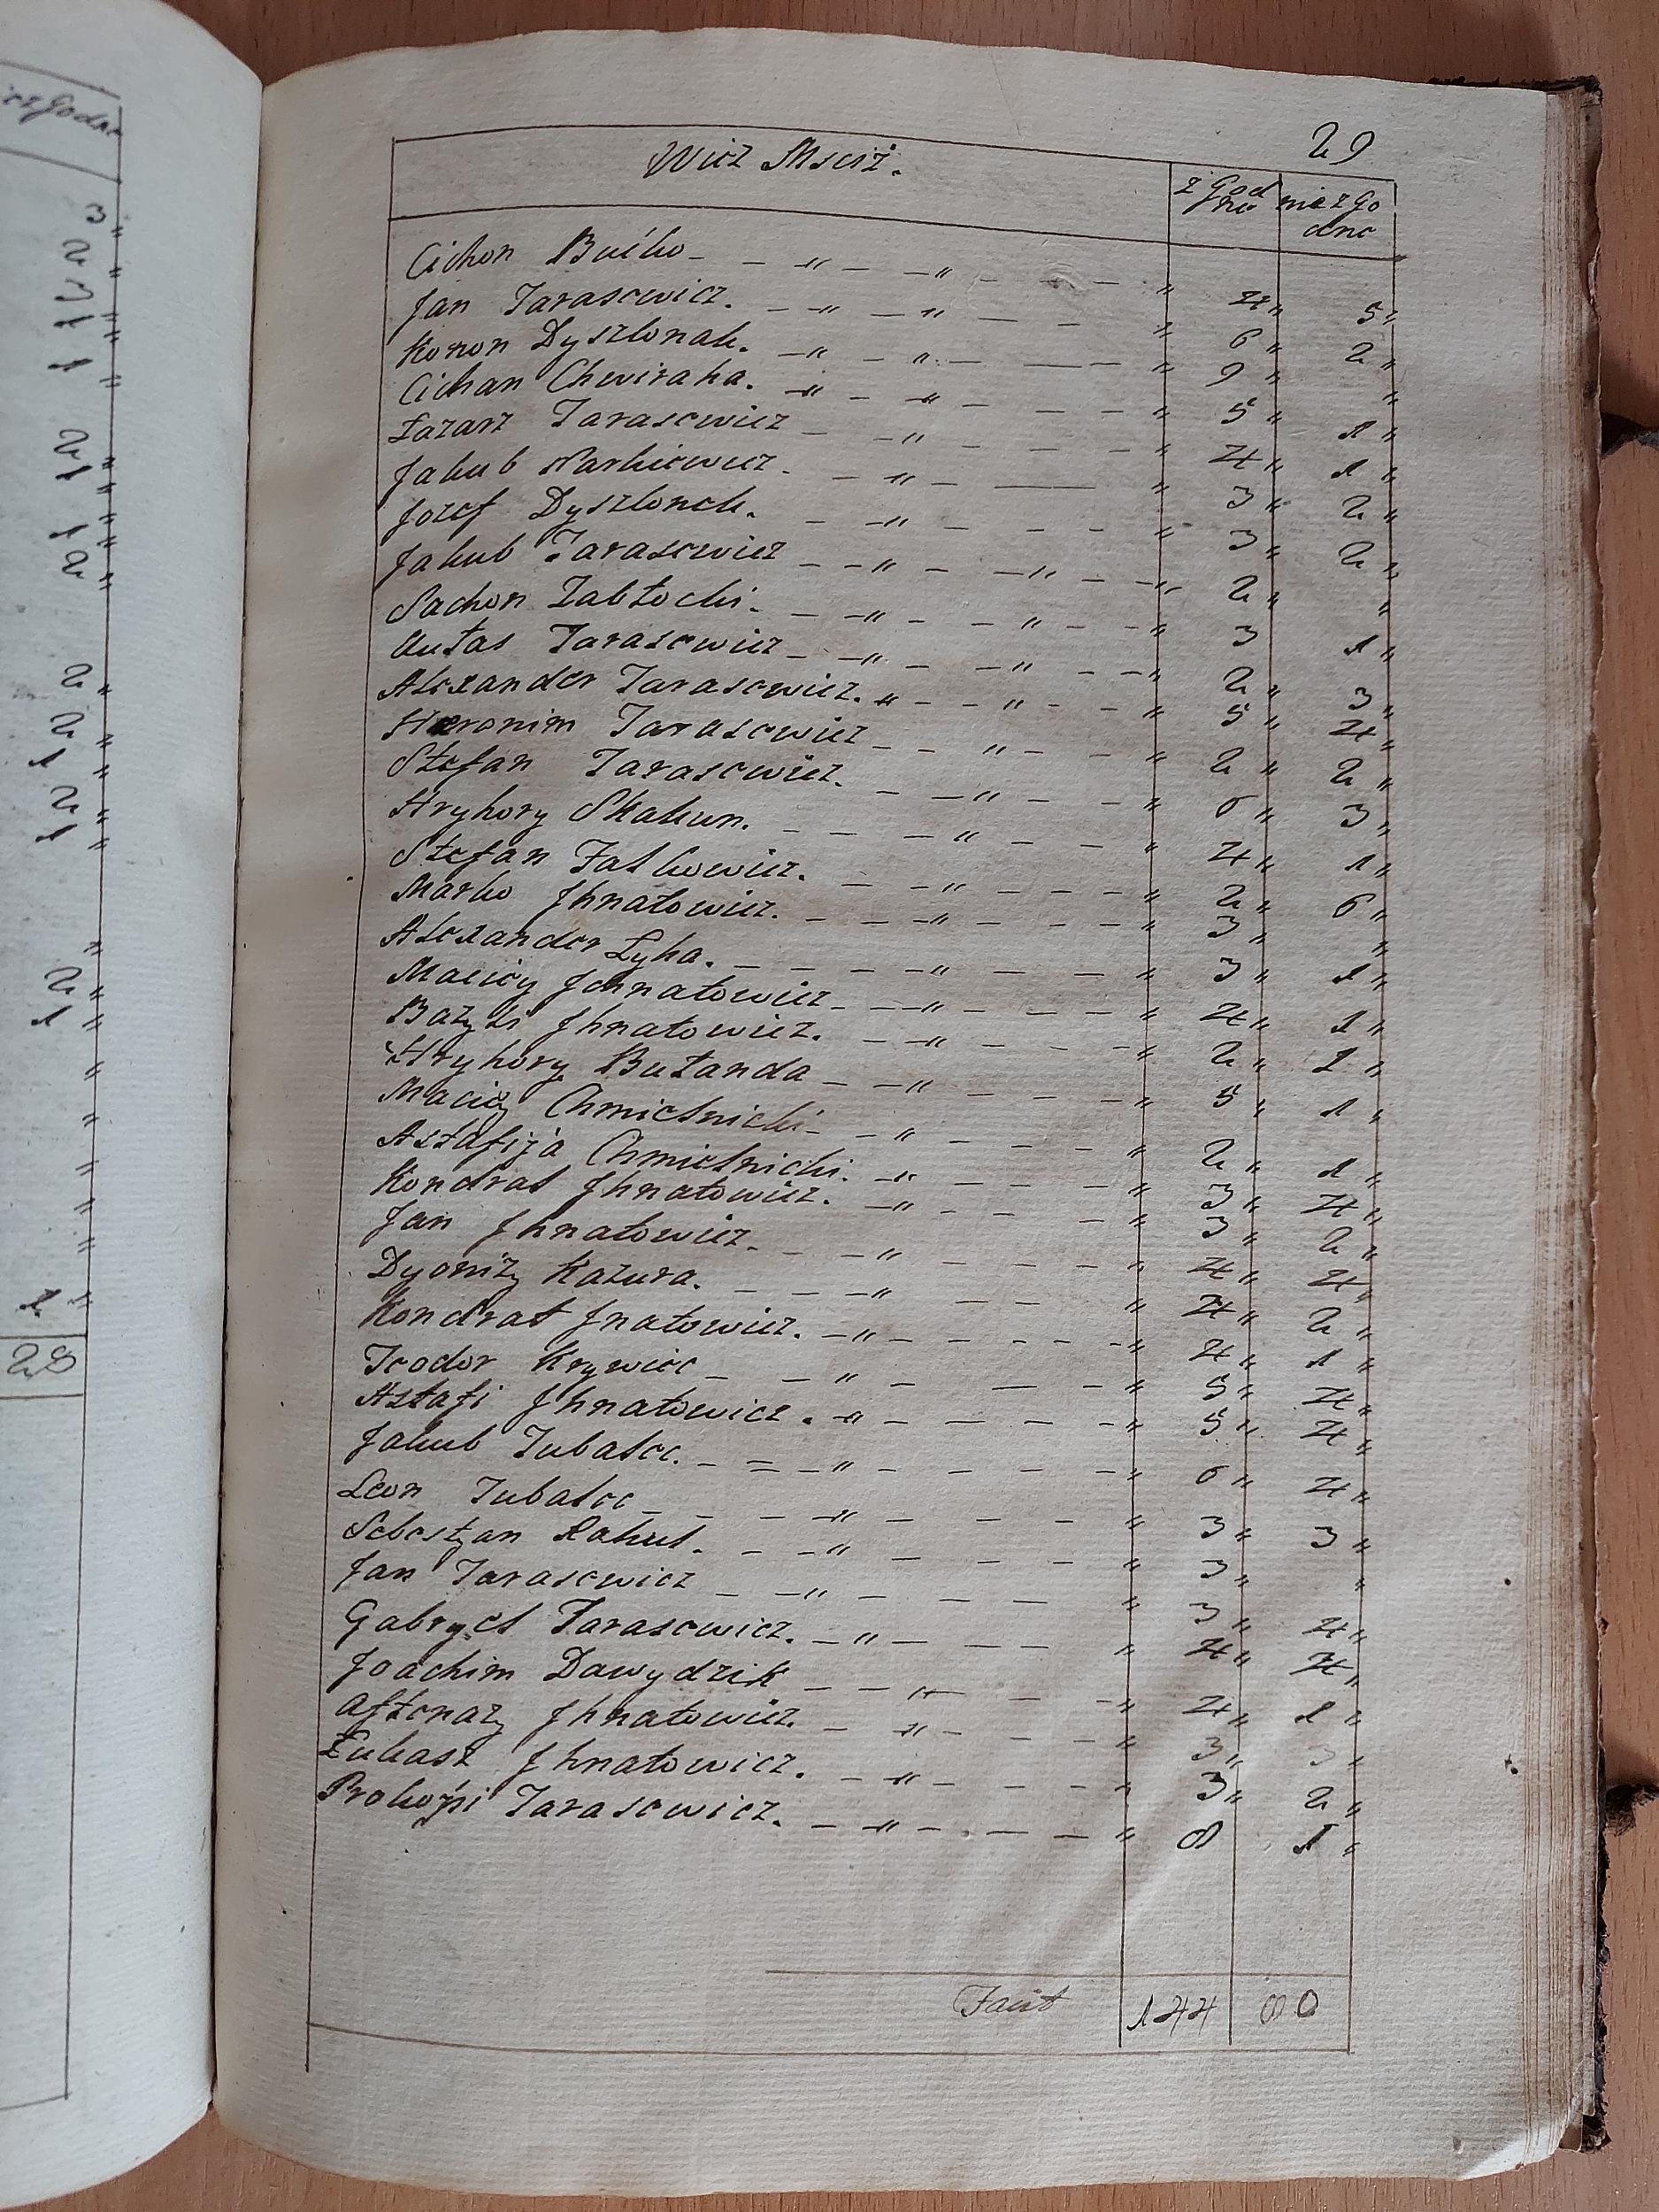 29
Wież Mściż.
zgodne niezgodne
Cichon Buiko 4 5
Jan Tarasewicz. 6 2
Konon Dyszlonak. 9
Cichan Chwiraha. 5 1
Łazarz Tarasewicz 4 1
Jakub Narkiewicz. 3 2
Jozef Dyszlonek. 3 2
Jakub Tarasewicz 2
Sachon Zabłocki. 3 1
Autas Tarasewicz 2 3
Alexander Tarasewicz. 5 4
Hieronim Tarasewicz 2 2
Stefan Tarasewicz. 6 3
Hryhory Skakun. 4 1
Stefan Falkowicz. 2 6
Marko Jhnatowicz. 3
Alexander Łyha. 3 1
Maciey Jehnatowicz 4 1
Bazyli Jhnatowicz. 2 1
Hryhory Butanda 5 1
Maciey Chmielnicki 2 1
Astafija Chmielnicki. 3 4
Kondrat Jhnatowicz. 3 2
Jan Jhnatowicz. 4 4
Dyonizy Kazura. 4 2
Kondrat Jnatowicz. 4 1
Teodor Krywiec 5 4
Astafi Jhnatowicz. 5 4
Jakub Tubalec. 6 4
Leon Tubalec 3 3
Sebestyan Rahul. 3
Jan Tarasewicz 3 4
Gabryel Tarasewicz. 4 4
Joachim Dawydzik 4 1
Aftonazy Jhnatowicz. 3 3
Łukasz Jhnatowicz. 3 2
Prokopi Tarasewicz. 8 1
Facit 144 80
28